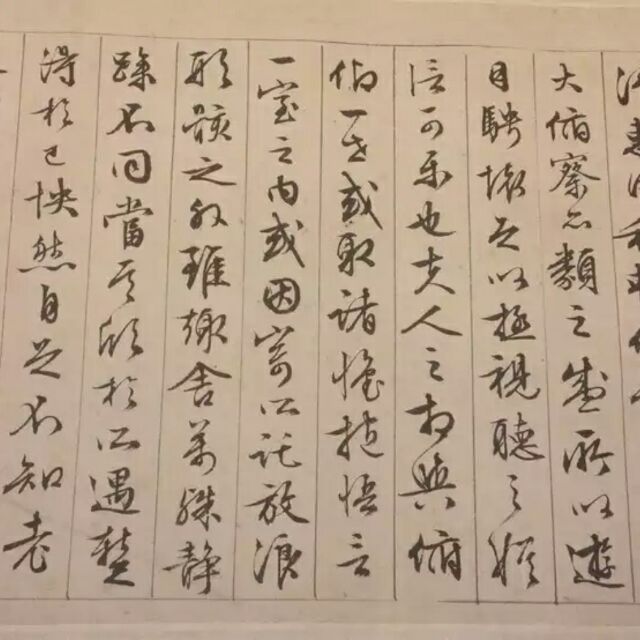 大俯察品類之盛所以遊
目騁懷足以極視聽之娛
信可樂也夫人之相與俯
仰一世或取諸懷抱悟言
一室之内或因寄所託放浪
形骸之外雖趣舍萬殊静
躁不同當其欣於所遇蹔
得於己怏然自足不知老